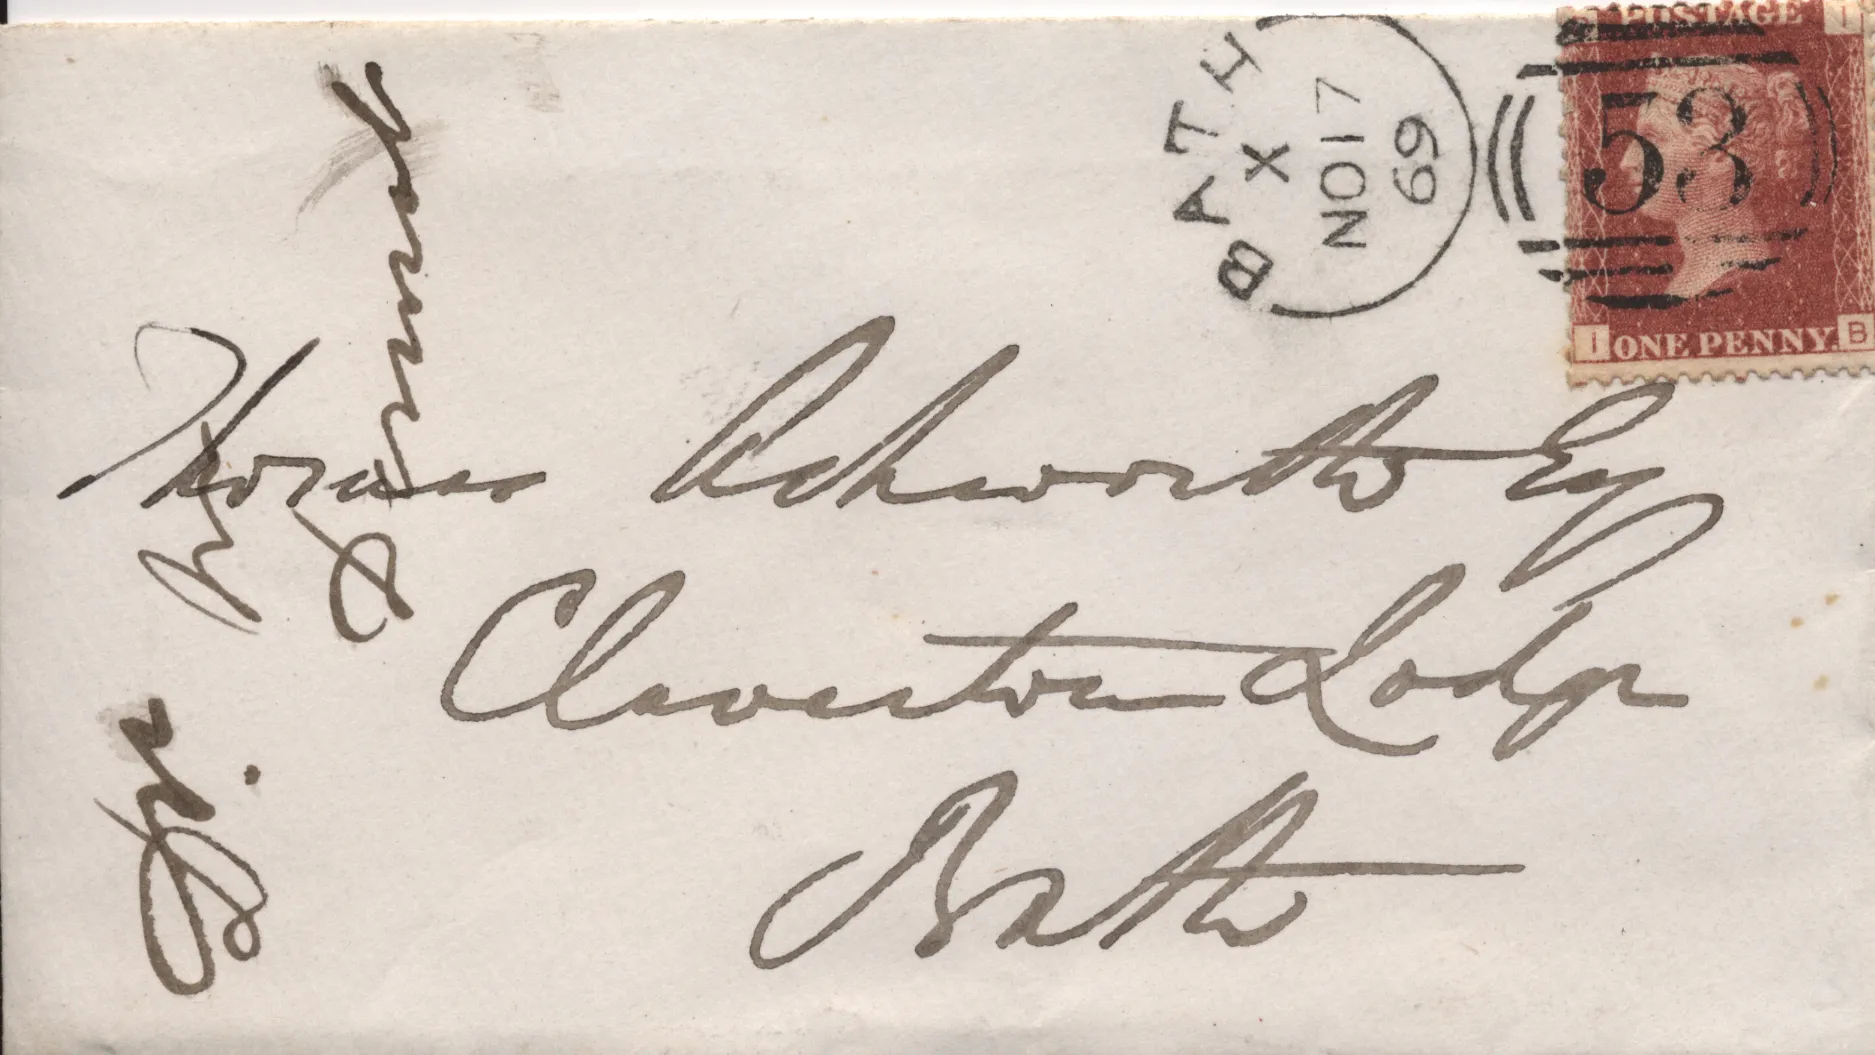 BATH
X
NO 17
69
53
POSTAGE
I
I ONE PENNY. B
Thomas Ashworth Esq
Claverton Lodge
Bath